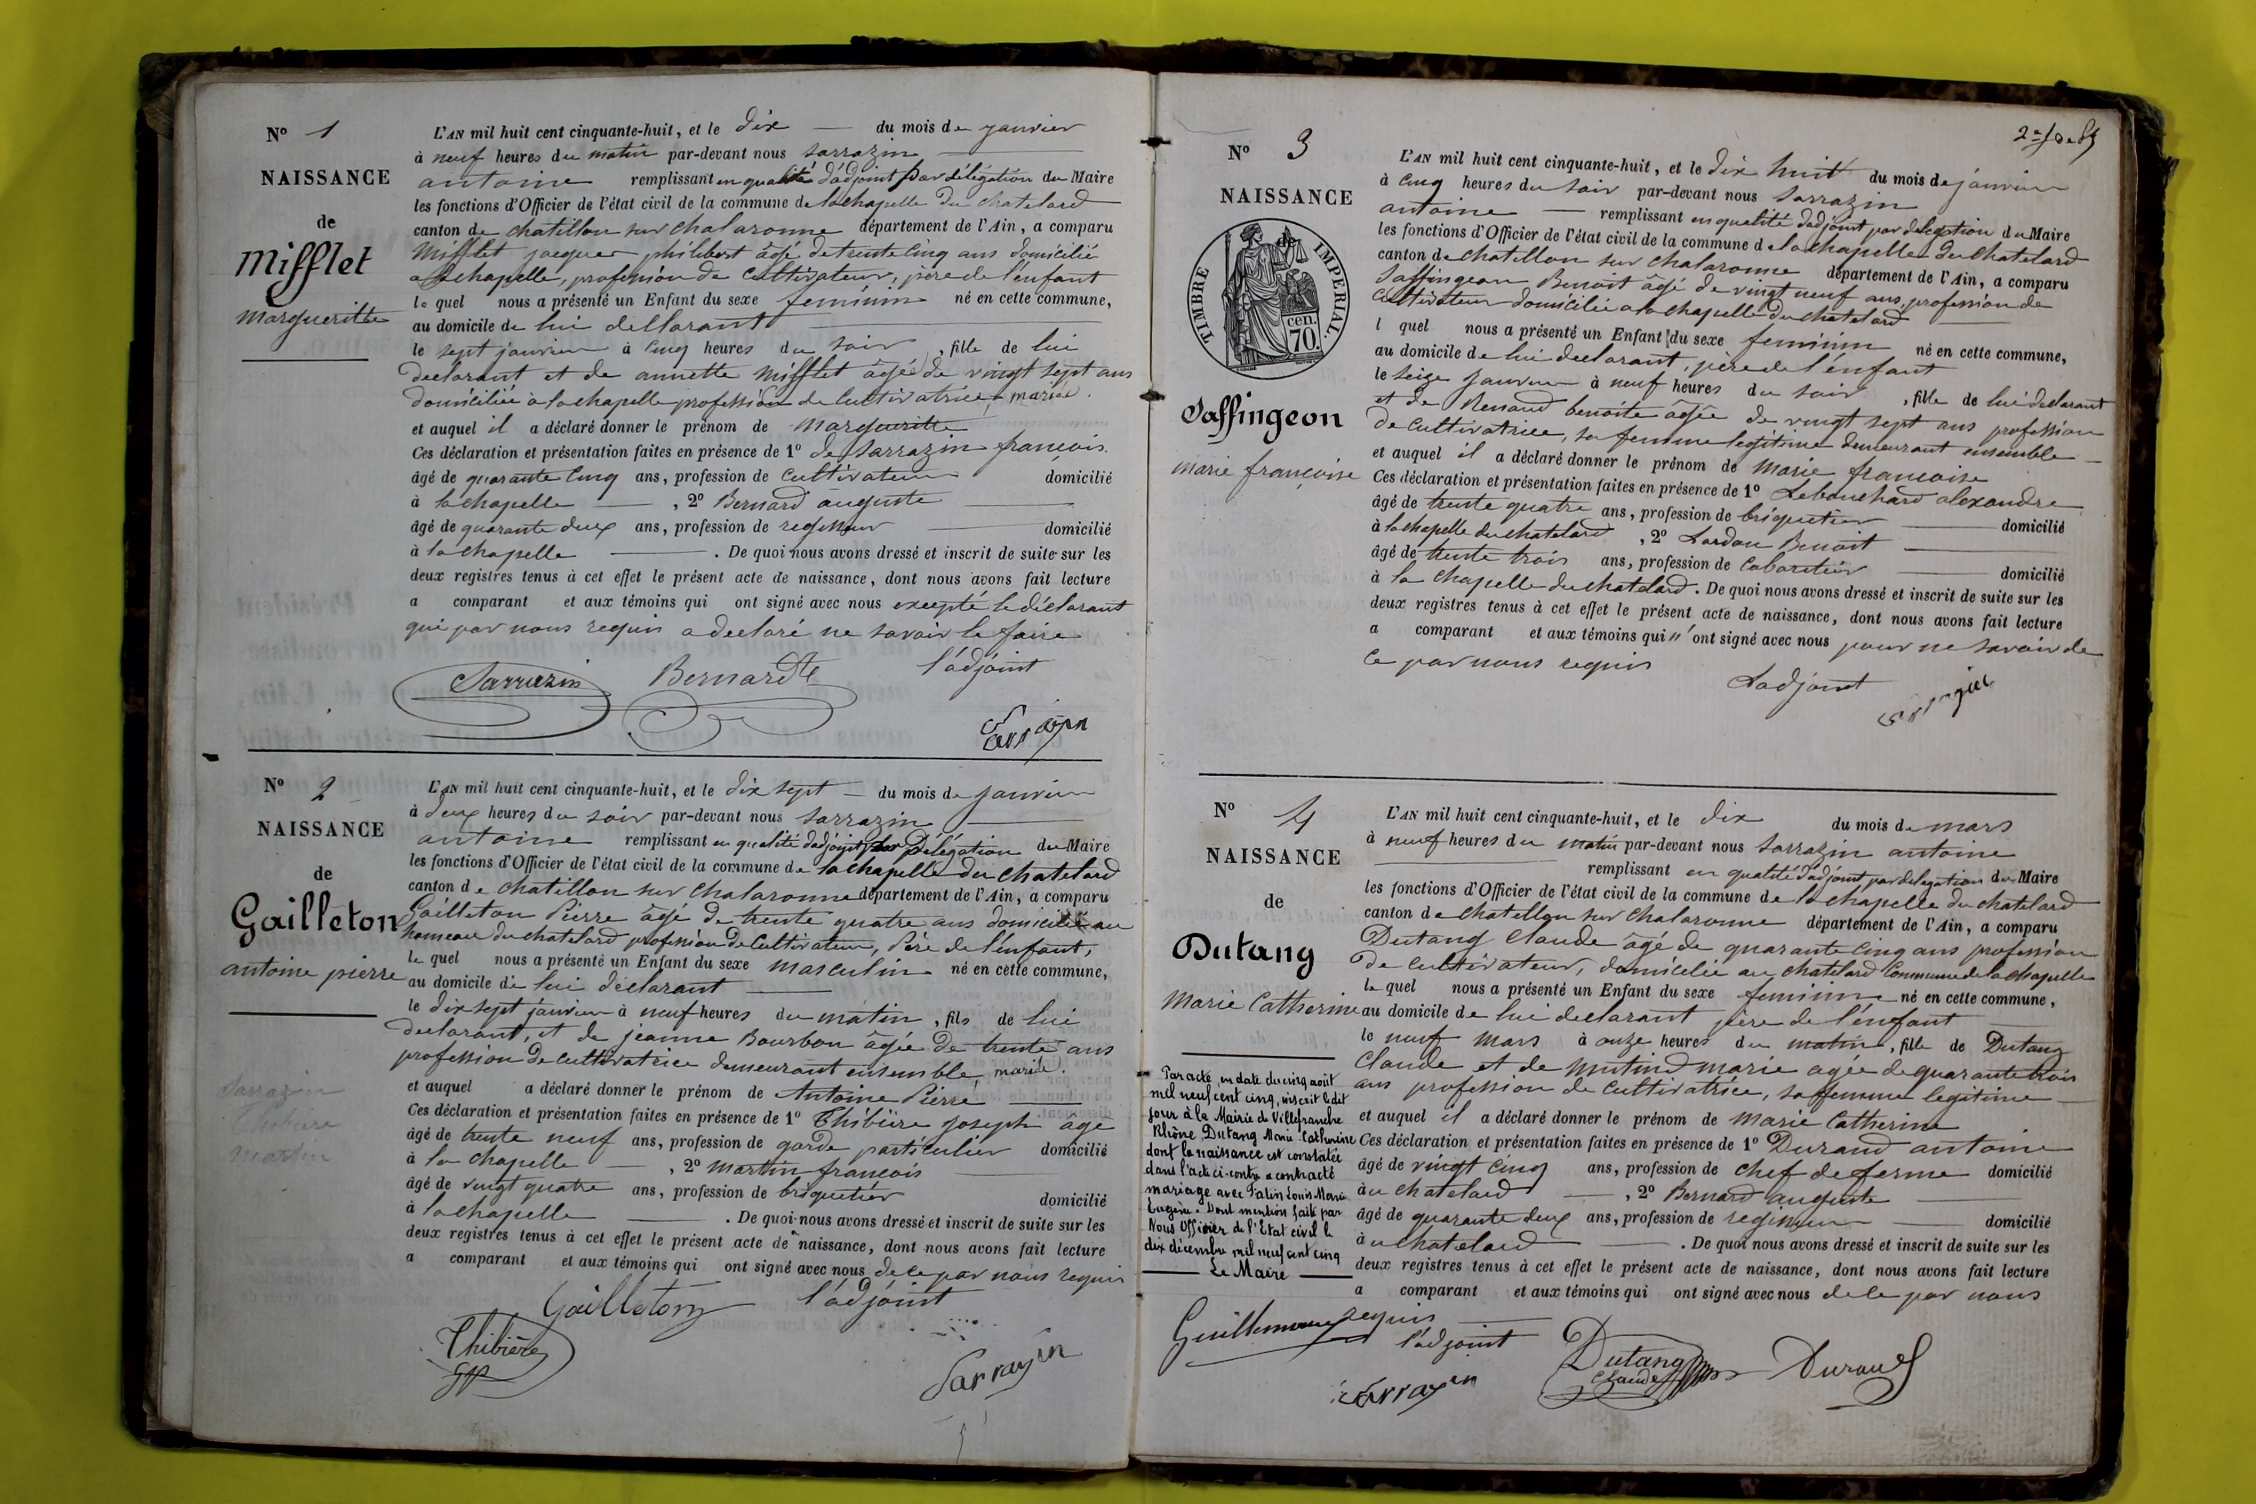 N° 1
NAISSANCE
de
Mifflet
Margueritte
L'AN mil huit cent cinquante-huit, et le dix du mois de janvier
à neuf heures du matin par-devant nous Sarrazin
antoine remplissant en qualité d'adjoint par délégation du Maire
les fonctions d'Officier de l'état civil de la commune de la chapelle du chatelard
canton de chatillon sur chalaronne département de l'Ain, a comparu
Mifflet jacques philibert âgé de trente cinq ans domicilié
a la chapelle, profession de cultivateur, père de l'enfant
le quel nous a présenté un Enfant du sexe feminin né en cette commune,
au domicile de lui declarant
le sept janvier à cinq heures du soir, fille de lui
declarant et de annette Mifflet âgée de vingt sept ans
domiciliée à la chapelle profession de cultivatrice, mariée.
et auquel il a déclaré donner le prénom de Margueritte
Ces déclaration et présentation faites en présence de 1° de Sarrazin francois.
âgé de quarante cinq ans, profession de cultivateur domicilié
à la chapelle, 2° Bernard auguste
âgé de quarante deux ans, profession de regisseur domicilié
à la chapelle. De quoi nous avons dressé et inscrit de suite sur les
deux registres tenus à cet effet le présent acte de naissance, dont nous avons fait lecture
a comparant et aux témoins qui ont signé avec nous excepté le déclarant
qui par nous requis a declaré ne savoir le faire
Sarrazin Bernard l'adjoint
Sarrazin
N° 2
NAISSANCE
de
Gailleton
antoine pierre
Sarrazin
Thibiere
Martin
L'AN mil huit cent cinquante-huit, et le dix sept du mois de janvier
à deux heures du soir par-devant nous Sarrazin
antoine remplissant en qualité d'adjoint par Délégation du Maire
les fonctions d'Officier de l'état civil de la commune de la chapelle du chatelard
canton de chatillon sur chalaronne département de l'Ain, a comparu
Gailleton Pierre âgé de trente quatre ans domicilié au
hameau du chatelard profession de cultivateur, Père de l'enfant,
le quel nous a présenté un Enfant du sexe masculin né en cette commune,
au domicile de lui déclarant
le dix sept janvier à neuf heures du matin, fils de lui
declarant, et de jeanne Bourbon âgée de trente ans
profession de cultivatrice demeurant ensemble, mariée.
et auquel a déclaré donner le prénom de Antoine Pierre
Ces déclaration et présentation faites en présence de 1° Thibière joseph âgé
âgé de trente neuf ans, profession de garde particulier domicilié
à la chapelle, 2° Martin francois
âgé de vingt quatre ans, profession de briquetier domicilié
à la chapelle. De quoi nous avons dressé et inscrit de suite sur les
deux registres tenus à cet effet le présent acte de naissance, dont nous avons fait lecture
a comparant et aux témoins qui ont signé avec nous de ce par nous requis
Gailleton l'adjoint
Thibière
Sarrazin
N° 3
NAISSANCE
TIMBRE IMPERIAL.
cen.
70.
Saffingeon
marie françoise
L'AN mil huit cent cinquante-huit, et le dix huit du mois de janvier
à cinq heures du soir par-devant nous Sarrazin
antoine remplissant en qualité d'adjoint par delegation du Maire
les fonctions d'Officier de l'état civil de la commune de la chapelle du chatelard
canton de chatillon sur chalaronne département de l'Ain, a comparu
Saffingeon Benoit âgé de vingt neuf ans, profession de
cultivateur domicilié a la chapelle du chatelard
l quel nous a présenté un Enfant du sexe feminin né en cette commune,
au domicile de lui declarant, père de l'enfant
le seize janvier à neuf heures du soir, fille de lui declarant
et de Renaud benoite âgée de vingt sept ans profession
de cultivatrice, sa femme legitime demeurant ensemble
et auquel il a déclaré donner le prénom de Marie francoise
Ces déclaration et présentation faites en présence de 1° Lebouchard alexandre
âgé de trente quatre ans, profession de briquetier domicilié
à la chapelle du chatelard, 2° Lardon Benoit
âgé de trente trois ans, profession de cabaretier domicilié
à la chapelle du chatelard. De quoi nous avons dressé et inscrit de suite sur les
deux registres tenus à cet effet le présent acte de naissance, dont nous avons fait lecture
a comparant et aux témoins qui n'ont signé avec nous pour ne savoir de
ce par nous requis
L'adjoint
N° 4
NAISSANCE
de
Dutang
Marie Catherine
Par acte en date du cinq août
mil neuf cent cinq, inscrit le dit
jour à la Mairie de Villefranche
Rhône Dutang Marie Catherine
dont la naissance est constatée
dans l'acte ci-contre a contracté
mariage avec Patin Louis Marie
Eugène. Dont mention faite par
Nous Officier de l'Etat civil le
dix décembre mil neuf cent cinq
Le Maire
Guillemaud
L'AN mil huit cent cinquante-huit, et le dix du mois de mars
à neuf heures du matin par-devant nous Sarrazin antoine
remplissant en qualité d'adjoint par delegation du Maire
les fonctions d'Officier de l'état civil de la commune de la chapelle du chatelard
canton de chatillon sur chalaronne département de l'Ain, a comparu
Dutang Claude âgé de quarante cinq ans profession
de cultivateur, domicilié au chatelard commune de la chapelle
le quel nous a présenté un Enfant du sexe feminin né en cette commune,
au domicile de lui declarant père de l'enfant
le neuf mars à onze heures du matin, fille de Dutang
Claude et de Mutind marie agée de quarante trois
ans profession de cultivatrice, sa femme legitime
et auquel il a déclaré donner le prénom de Marie Catherine
Ces déclaration et présentation faites en présence de 1° Durand antoine
âgé de vingt cinq ans, profession de chef de ferme domicilié
au chatelard, 2° Bernard auguste
âgé de quarante deux ans, profession de regisseur domicilié
à u chatelard. De quoi nous avons dressé et inscrit de suite sur les
deux registres tenus à cet effet le présent acte de naissance, dont nous avons fait lecture
a comparant et aux témoins qui ont signé avec nous de ce par nous
requis
l'adjoint
Sarrazin Dutang Claude Durand